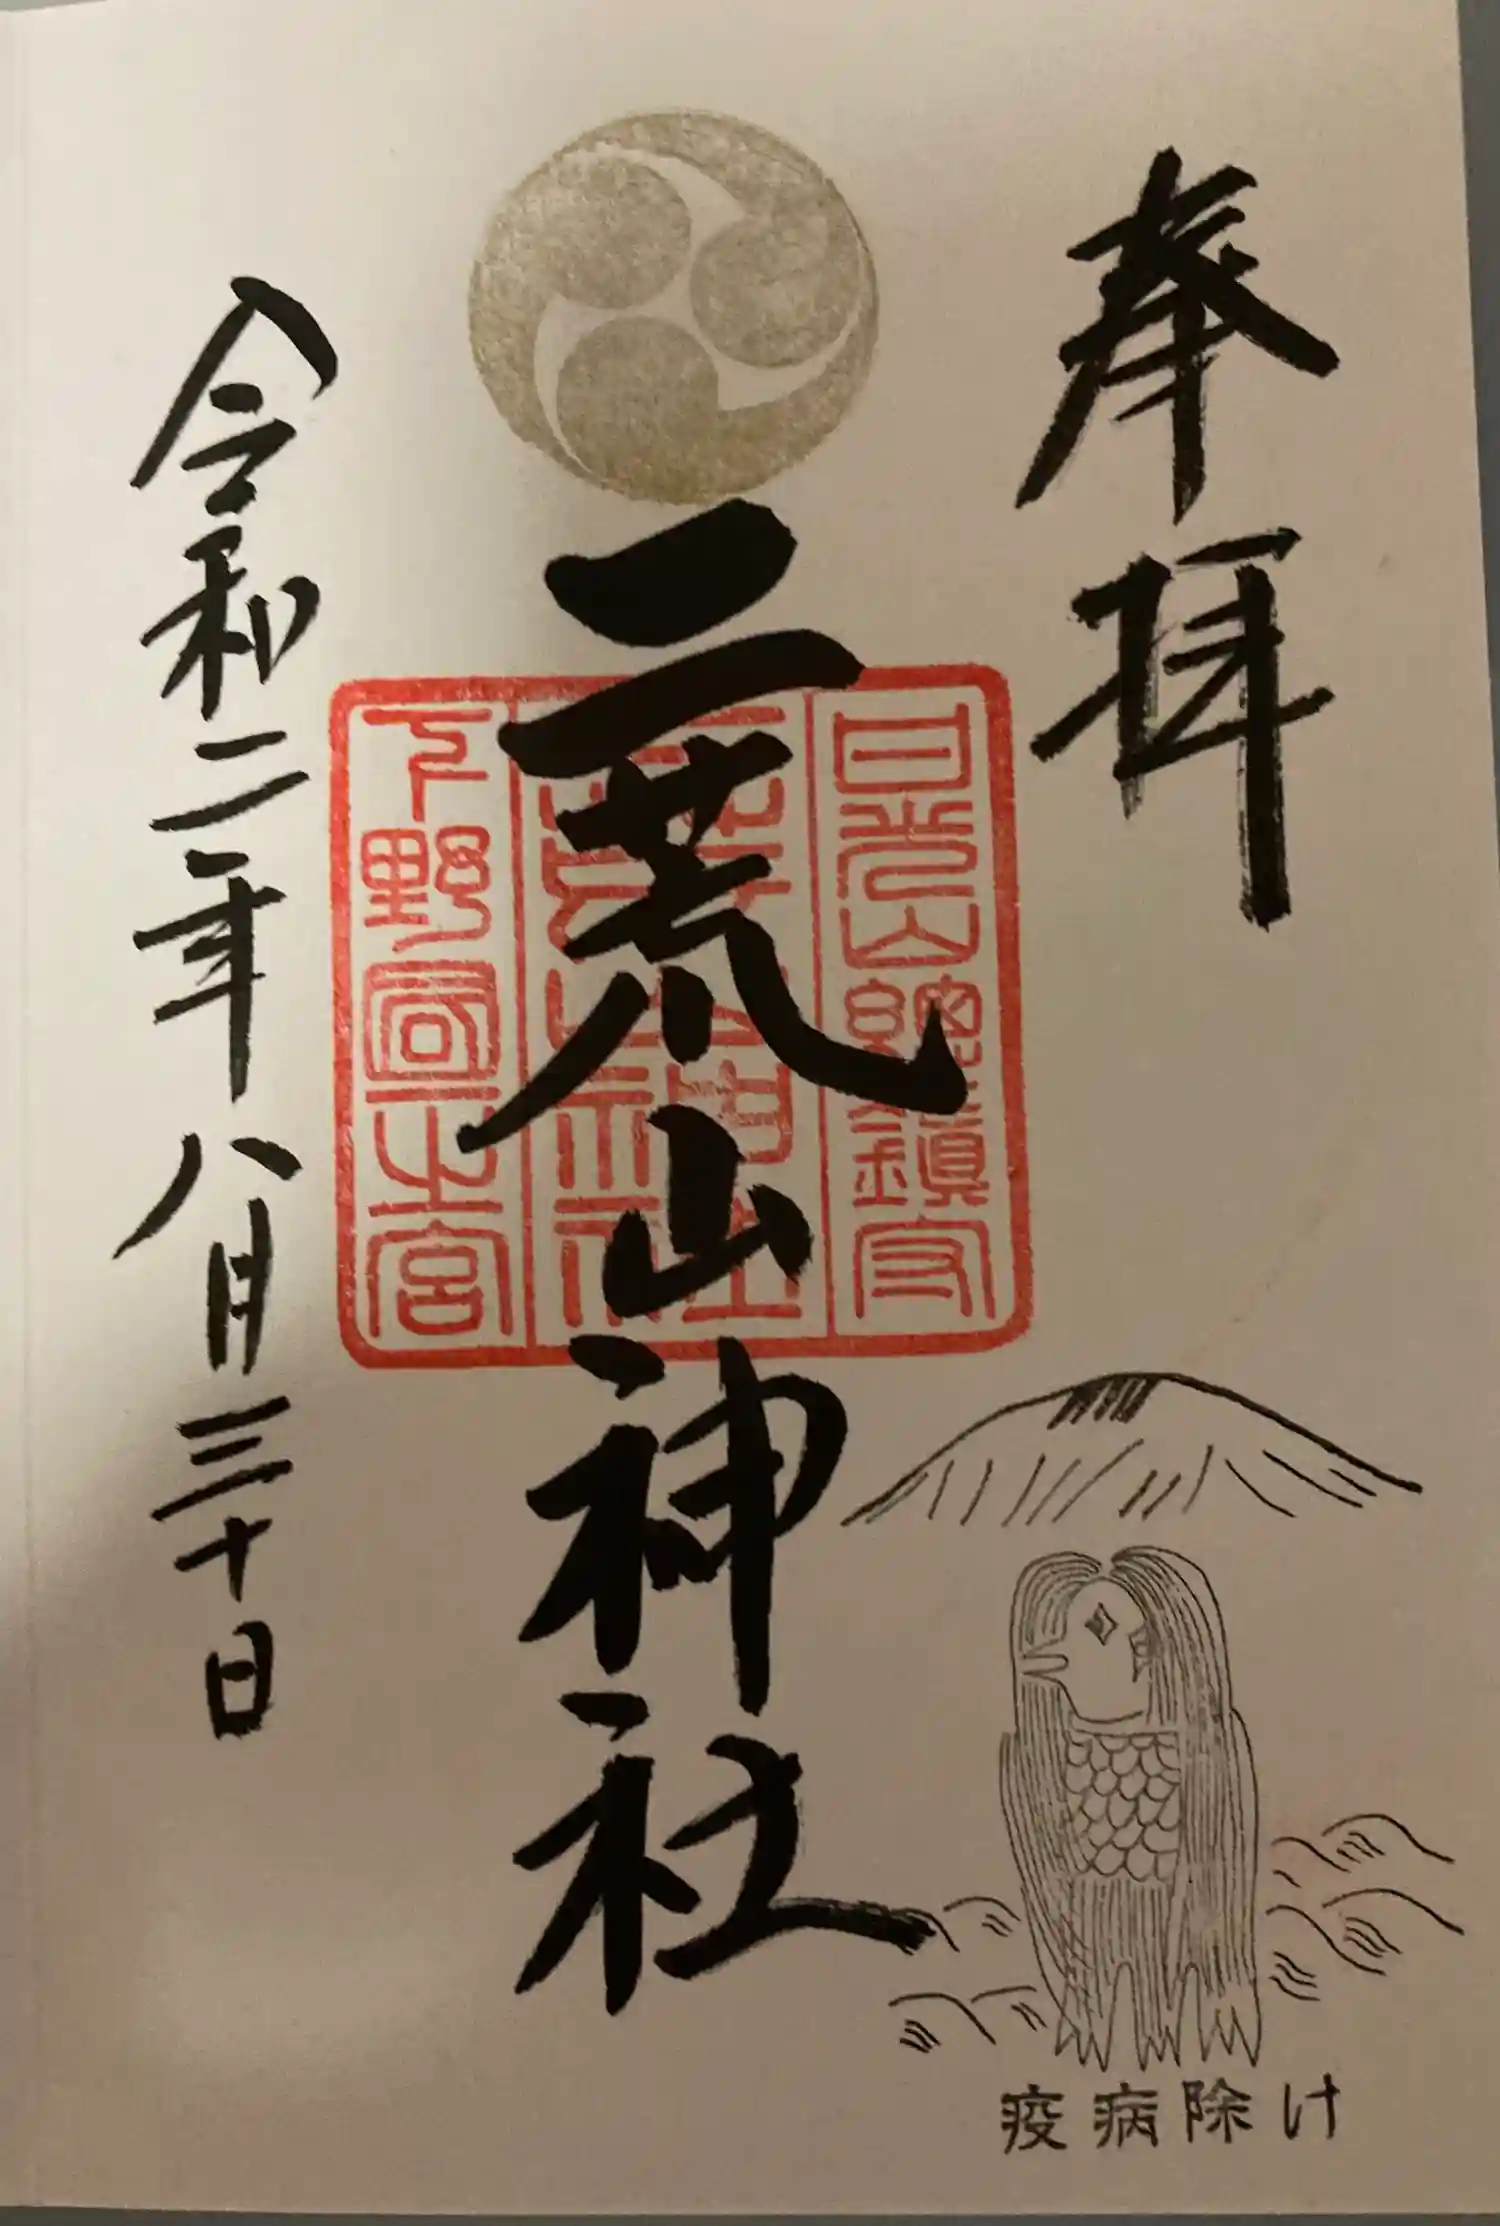 奉拝
日光山總鎮守
二荒山神社
下野國一之宮
二荒山神社
令和二年八月三十日
疫病除け